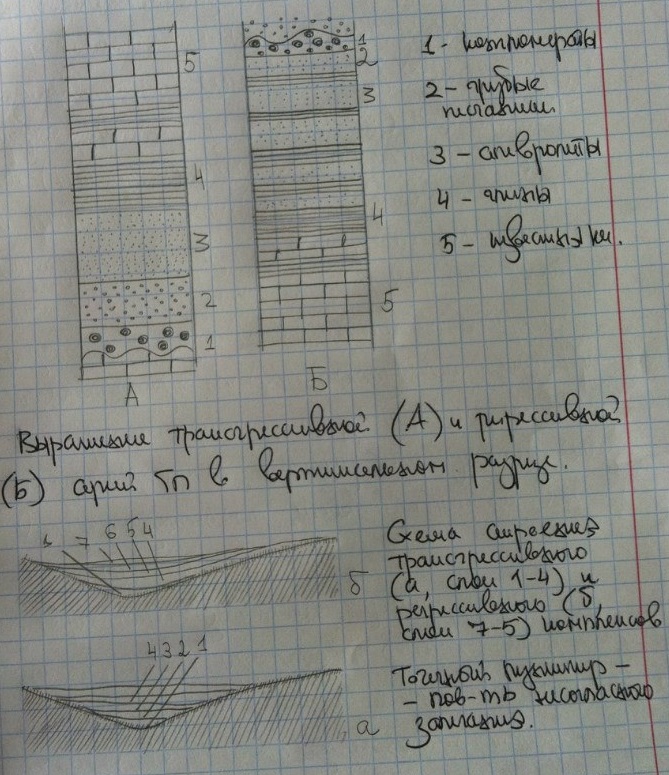 5
4
3
2
1
А
1
2
3
4
5
Б
1 - конгломераты
2 - грубые
песчаники
3 - алевролиты
4 - глины
5 - известняки.
Выражение трансгрессивной (А) и регрессивной
(Б) серий гп в вертикальном разрезе.
7 6 5 4
б
4 3 2 1
а
Схема строения
трансгрессивного
(а, слои 1-4) и
регрессивного (б,
слои 7-5) комплексов
Точечный пунктир -
- пов-ть несогласного
залегания.